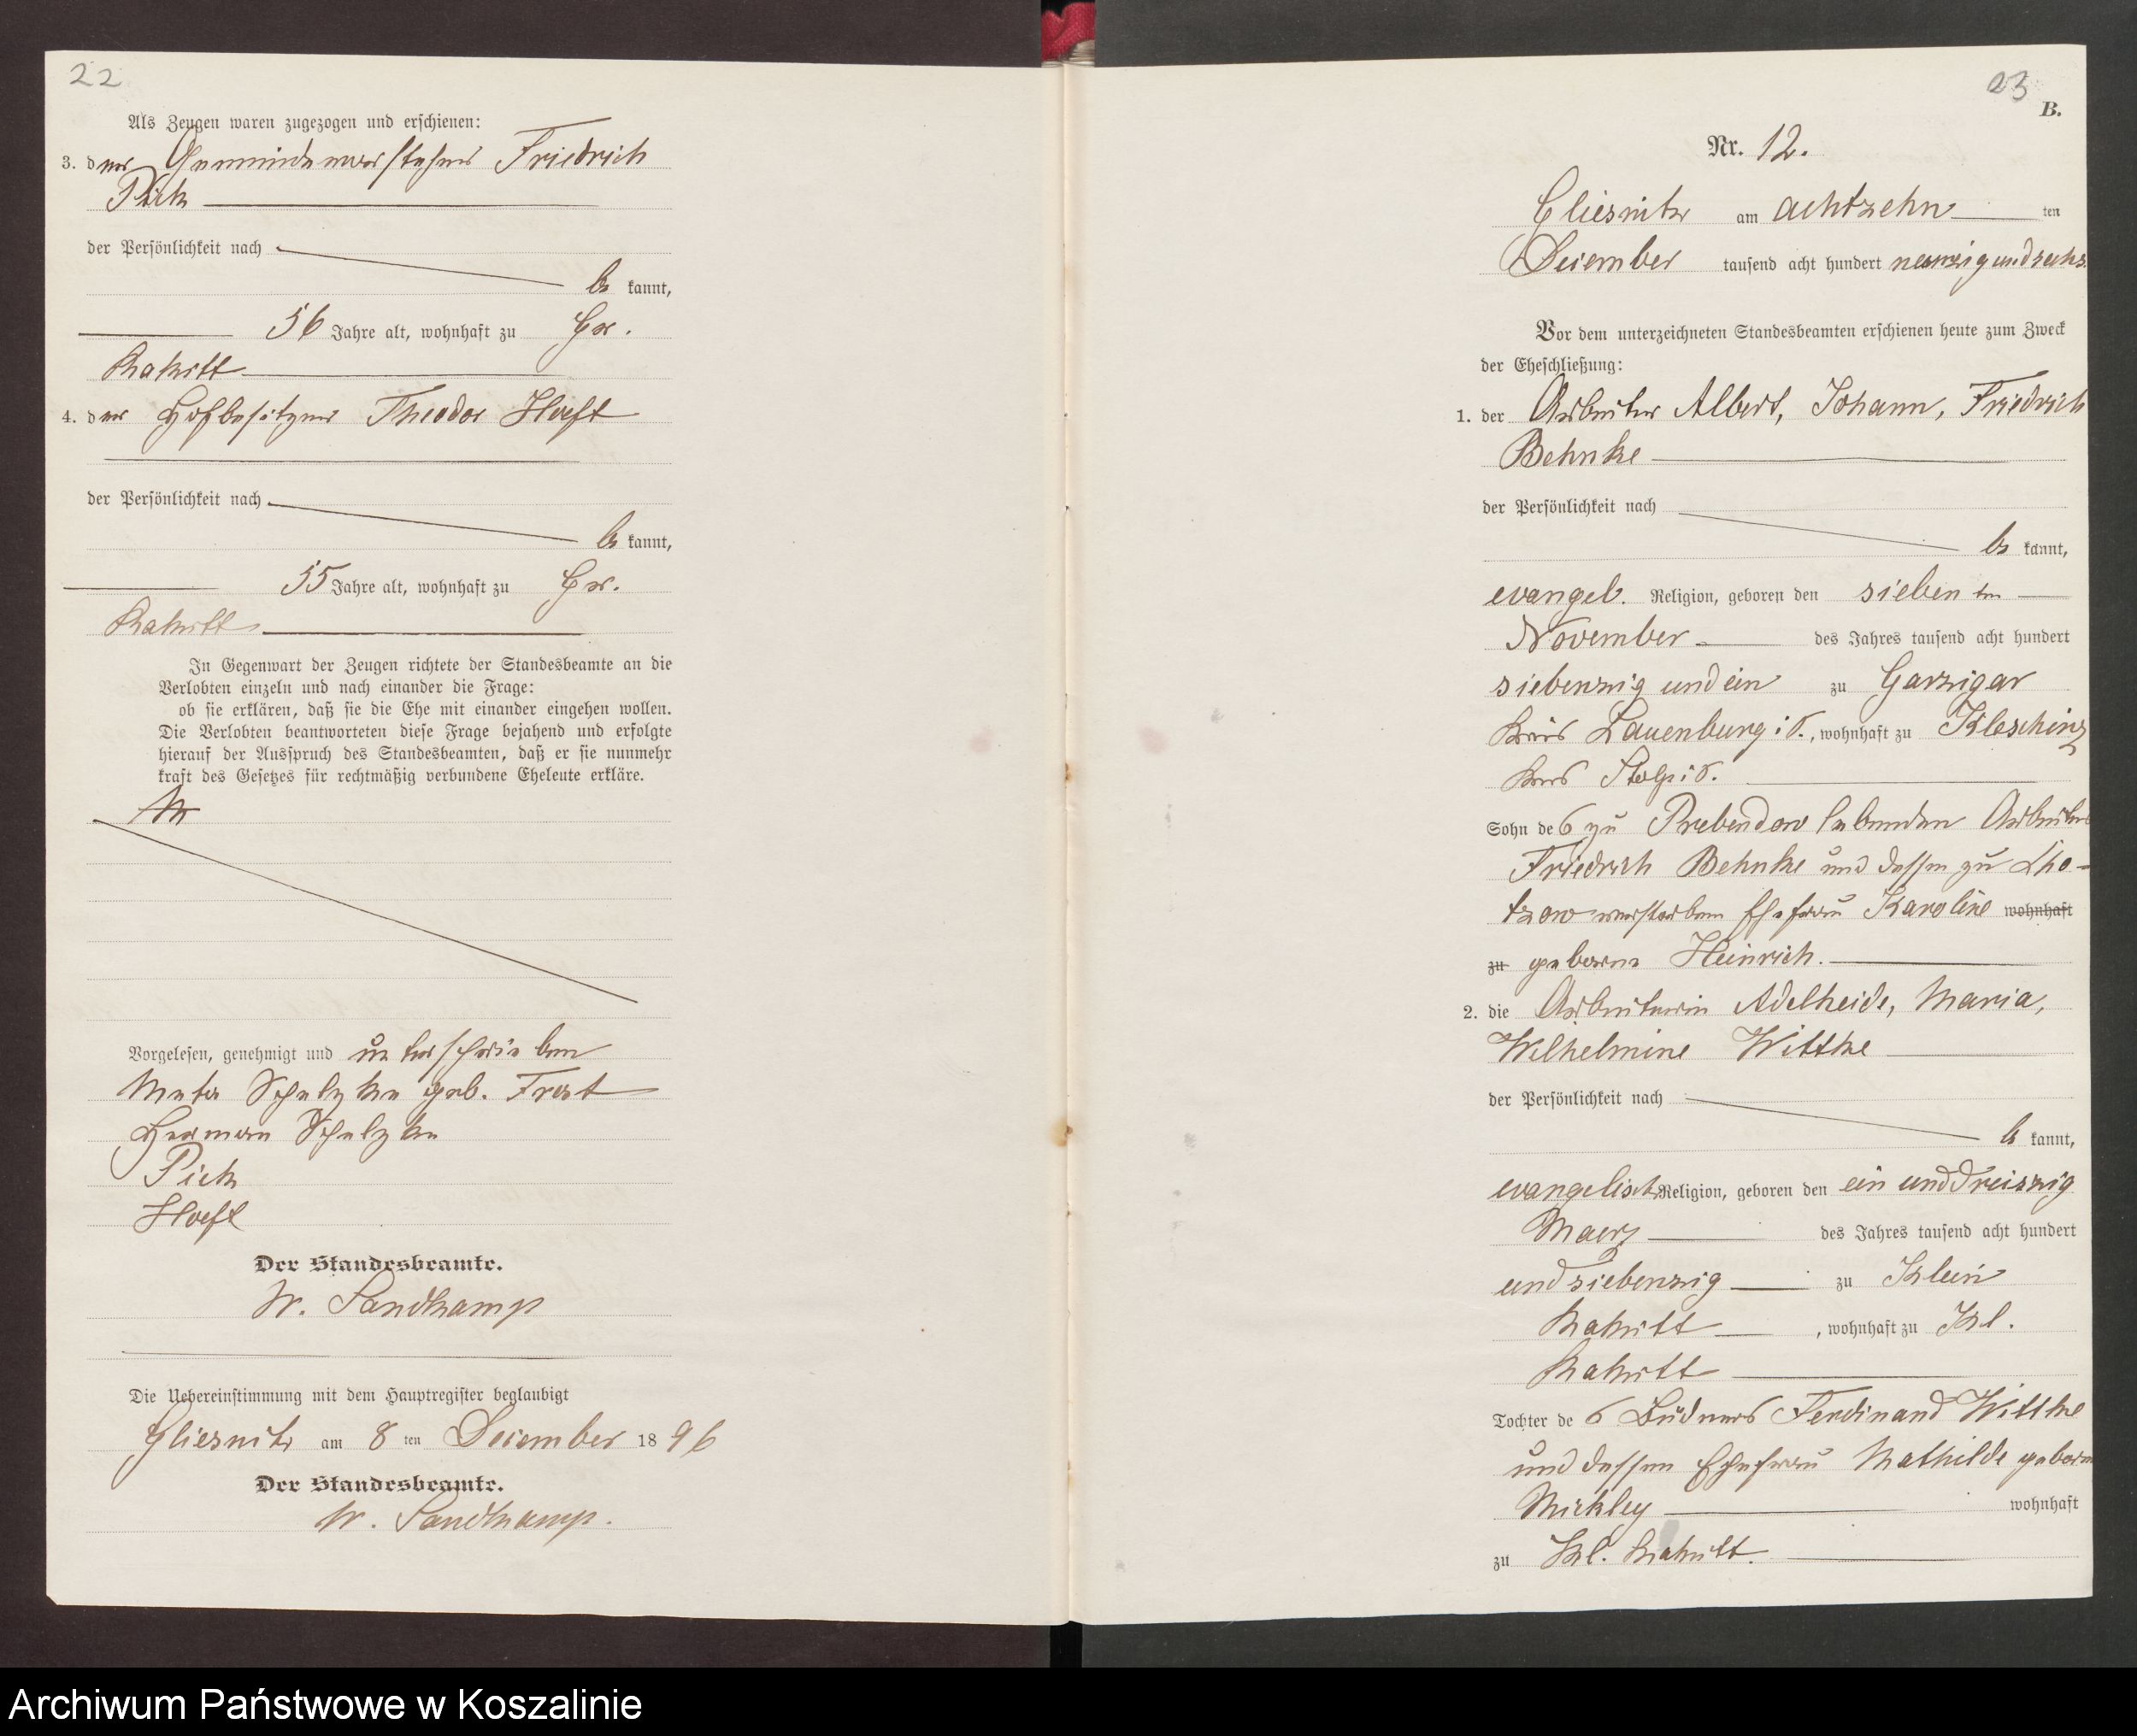 22
Als Zeugen waren zugezogen und erschienen:
3. der Gemeindevorsteher Friedrich
Pich
der Persönlichkeit nach
be kannt,
56 Jahre alt, wohnhaft zu Gr.
Rakitt
4. der Hofbesitzer Theodor Hoeft
der Persönlichkeit nach
be kannt,
55 Jahre alt, wohnhaft zu Gr.
Rakitt
In Gegenwart der Zeugen richtete der Standesbeamte an die
Verlobten einzeln und nach einander die Frage:
ob sie erklären, daß sie die Ehe mit einander eingehen wollen.
Die Verlobten beantworteten diese Frage bejahend und erfolgte
hierauf der Ausspruch des Standesbeamten, daß er sie nunmehr
kraft des Gesetzes für rechtmäßig verbundene Eheleute erkläre.
Vorgelesen, genehmigt und unterschrieben
Meta Schulzke geb. Frost
Herman Schulzke
Pich
Hoeft
Der Standesbeamte.
W. Sandkamp
Die Uebereinstimmung mit dem Hauptregister beglaubigt
Gliesnitz am 8 ten Dezember 18 96
Der Standesbeamte.
W. Sandkamp.
23
B.
Nr. 12.
Gliesnitz am achtzehn ten
Dezember tausend acht hundert neunzig und sechs.
Vor dem unterzeichneten Standesbeamten erschienen heute zum Zweck
der Eheschließung:
1. der Arbeiter Albert, Johann, Friedrich
Behnke
der Persönlichkeit nach
be kannt,
evangel. Religion, geboren den sieben ten
November des Jahres tausend acht hundert
siebenzig und ein zu Garzigar
Kreis Lauenburg i P., wohnhaft zu Kleschinz
Kreis Stolp i P.
Sohn des zu Prebendow lebenden Arbeiters
Friedrich Behnke und dessen zu Cho-
tzow verstorbenen Ehefrau Karoline wohnhaft
zu geborne Heinrich.
2. die Arbeiterin Adelheide, Maria,
Wilhelmine Witthe
der Persönlichkeit nach
be kannt,
evangelisch Religion, geboren den ein und dreiszig
Maerz des Jahres tausend acht hundert
und siebenzig zu Klein
Rakitt, wohnhaft zu Kl.
Rakitt
Tochter des Büdners Ferdinand Witthe
und dessen Ehefrau Mathilde geborne
Mickley wohnhaft
zu Kl. Rakitt.
Archiwum Państwowe w Koszalinie